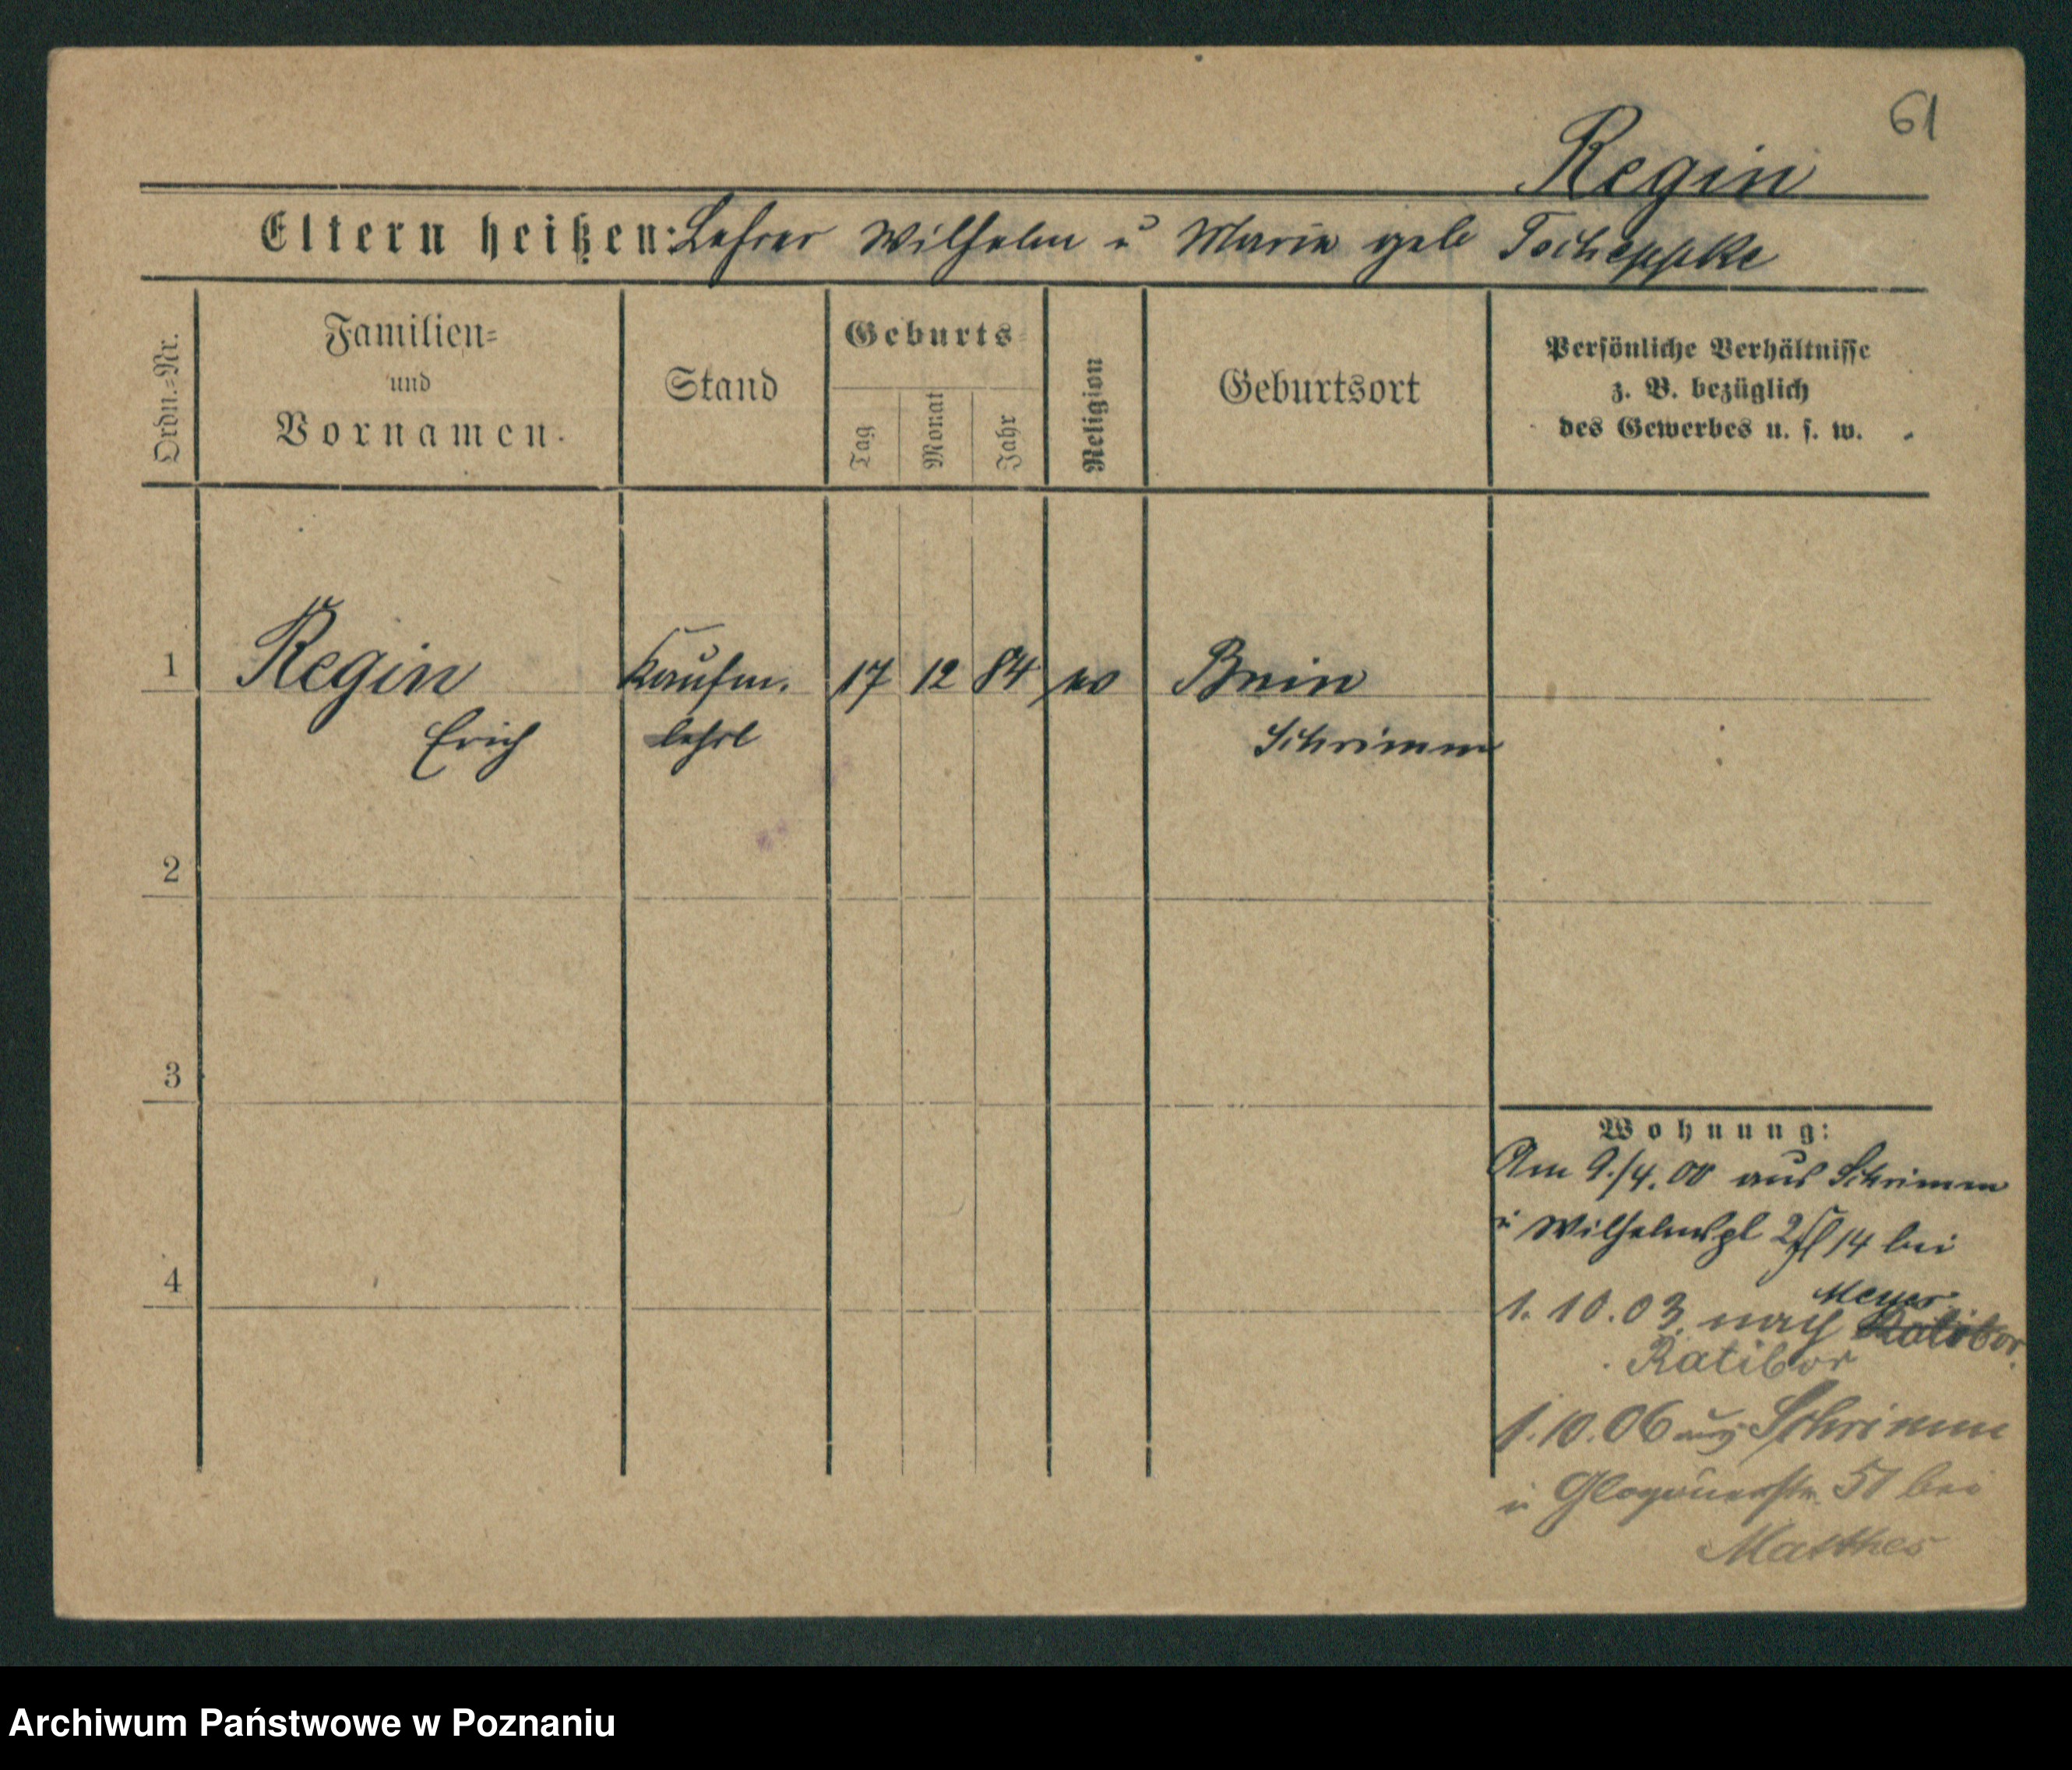 61
Regin
Eltern heißen: Lehrer Wilhelm u Marie geb Tscheppke
Ordn.-Nr.
Familien-
und
Vornamen.
Stand
Geburts-
Tag
Monat
Jahr
Religion
Geburtsort
Persönliche Verhältnisse
z. B. bezüglich
des Gewerbes u. s. w.
1 Regin Kaufm. 17 12 84 ev Bnin
Erich lehrl Schrimm
2
3
4
Wohnung:
Am 9./4. 00 aus Schrimm
u Wilhelmspl 14 bei
Meyer
1. 10. 03 nach Ratibor.
Ratibor
1. 10. 06 aus Schrimm
u Glogauerstr. 51 bei
Matthes
Archiwum Państwowe w Poznaniu